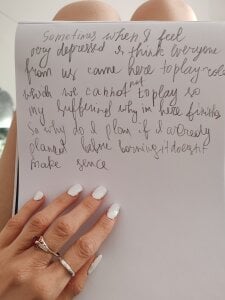 Sometimes when I feel
very depressed I think everyone
from us came here to play role
which we cannot not to play so
my suffering why im here finishes
So why do I plan if I already
planed before borning it doesnt
make sence